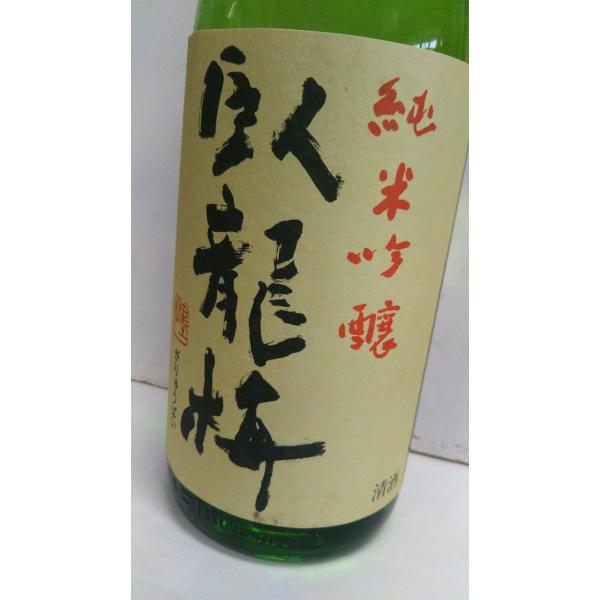 純米吟醸
臥龍梅
がりゅうばい
清酒